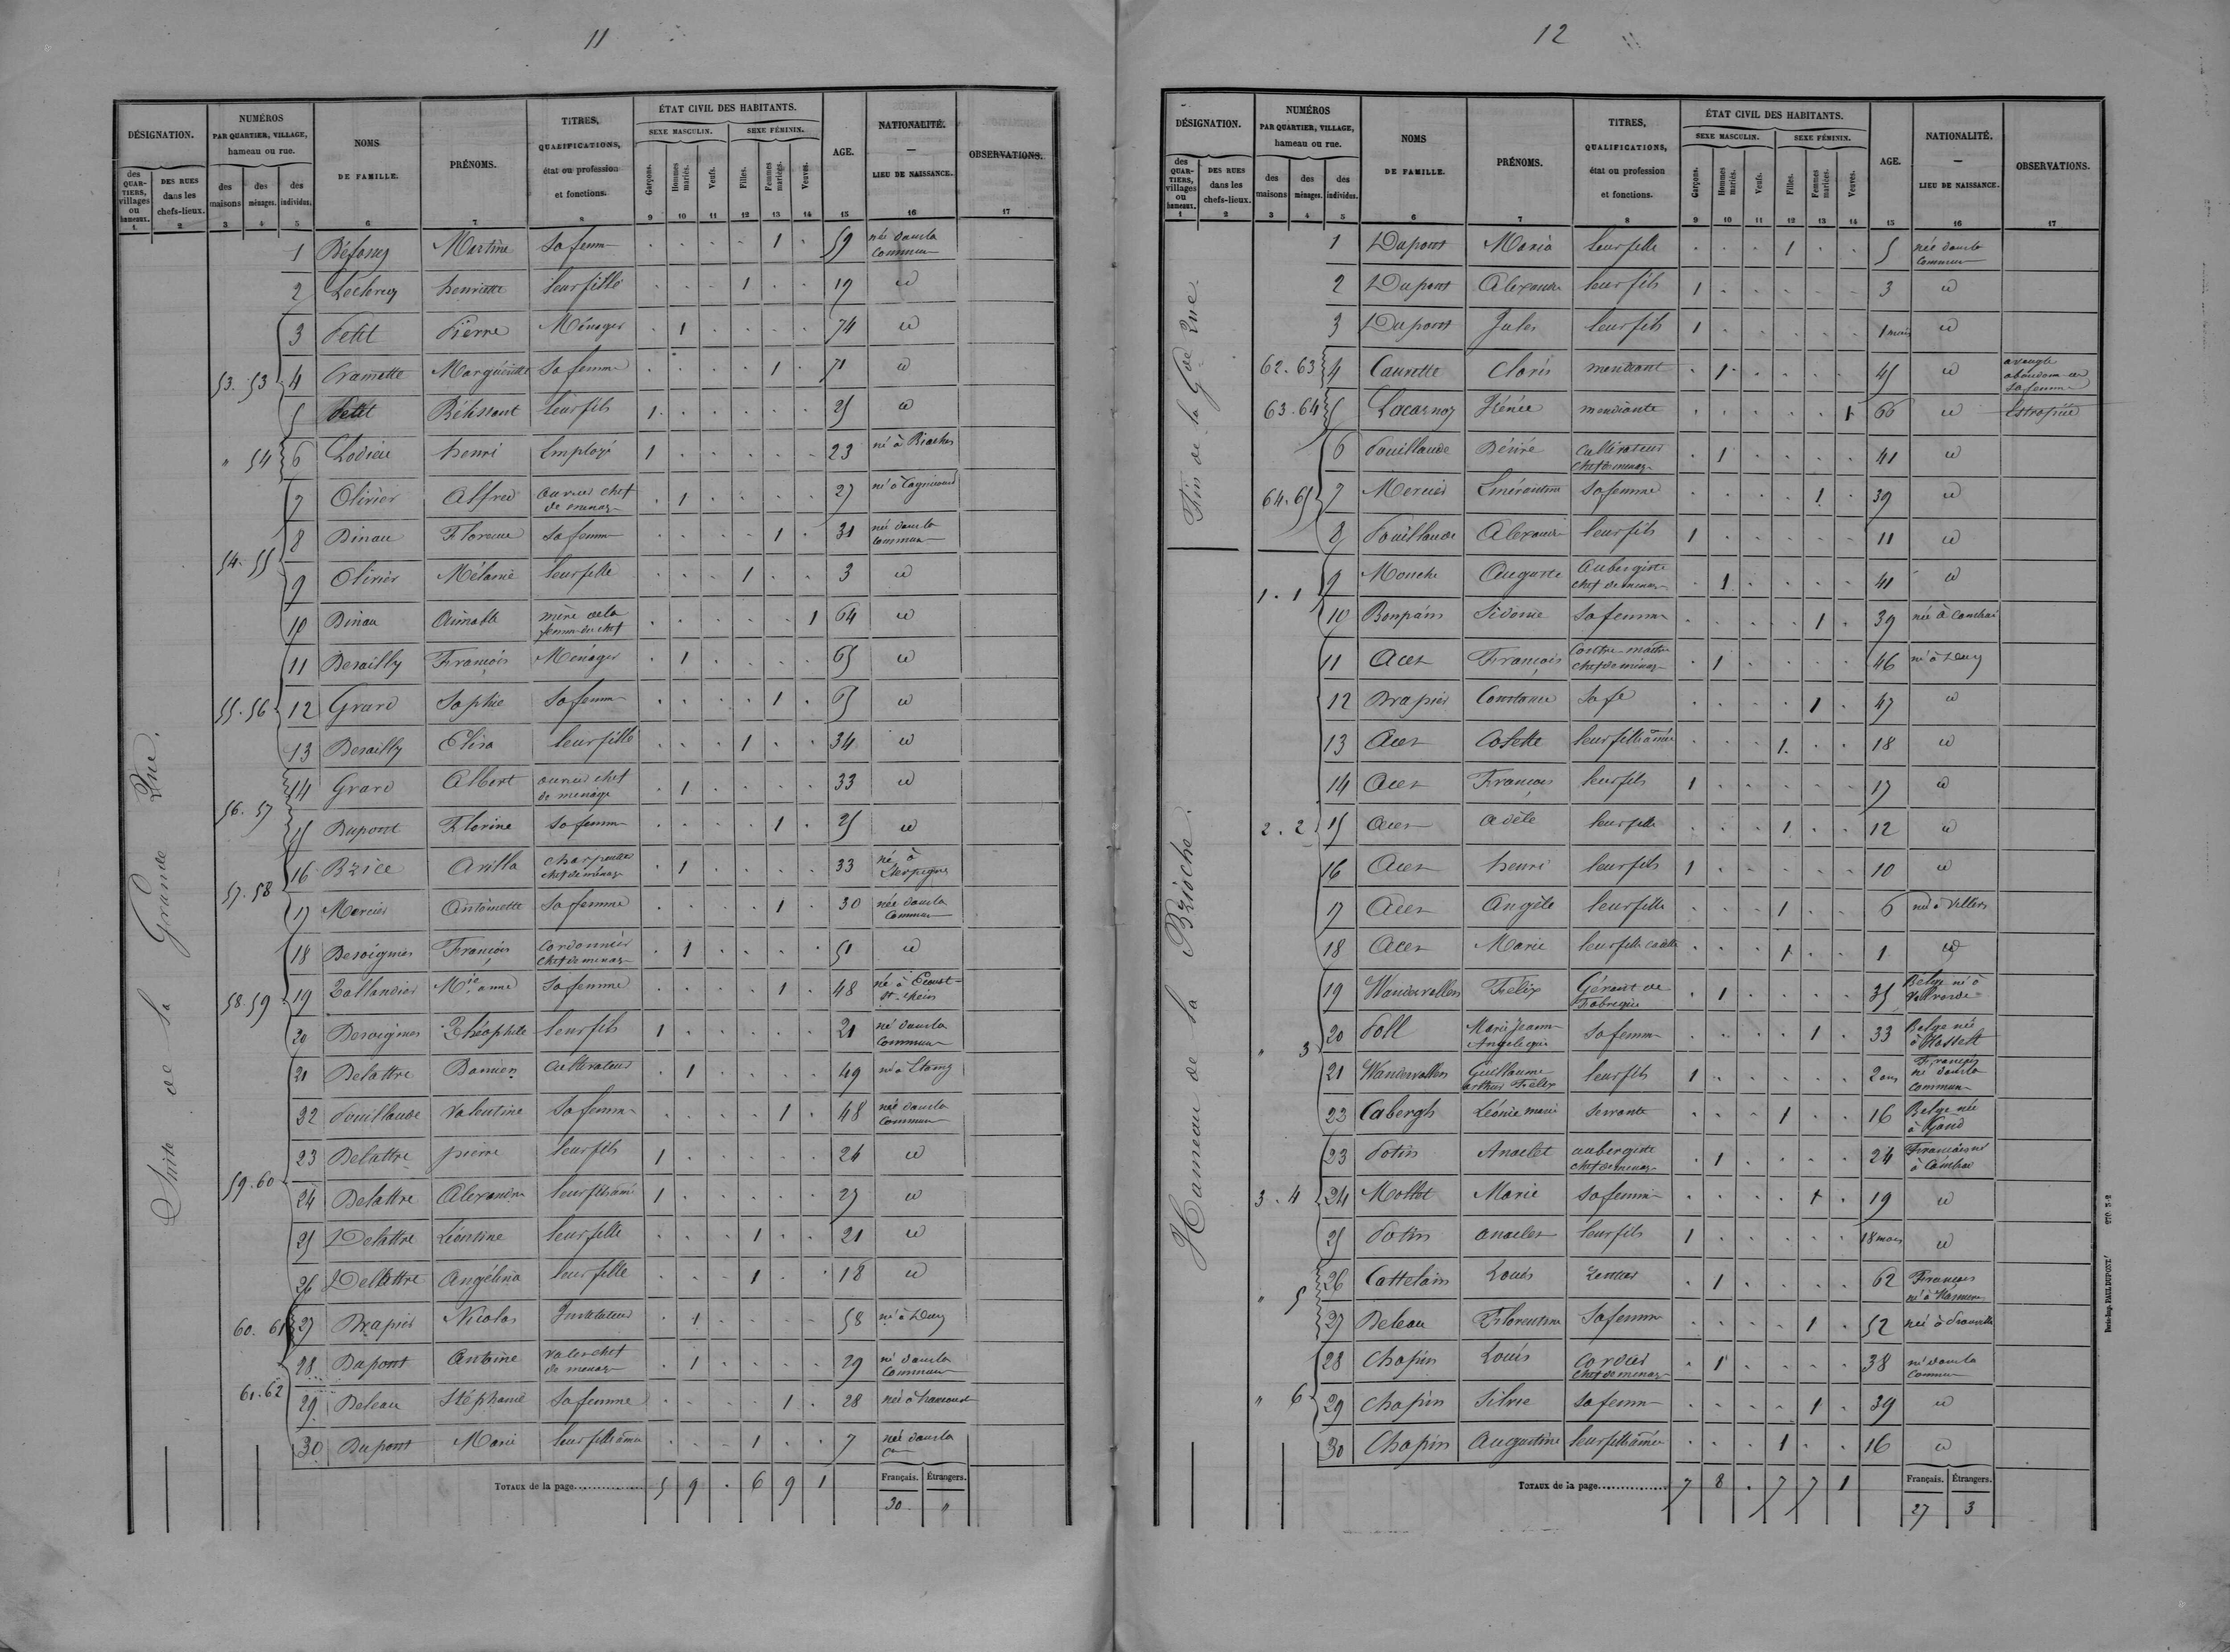 11
DÉSIGNATION.
NUMÉROS
PAR QUARTIER, VILLAGE,
hameau ou rue.
NOMS
DE FAMILLE.
PRÉNOMS.
TITRES,
QUALIFICATIONS,
état ou profession
et fonctions.
ÉTAT CIVIL DES HABITANTS.
SEXE MASCULIN.
SEXE FÉMININ.
AGE.
NATIONALITÉ.
—
LIEU DE NAISSANCE.
OBSERVATIONS.
des QUARTIERS, villages ou hameaux.
DES RUES dans les chefs-lieux.
des maisons
des ménages.
des individus.
Garçons.
Hommes mariés.
Veufs.
Filles.
Femmes mariées.
Veuves.
1 2 3 4 5 6 7 8 9 10 11 12 13 14 15 16 17
Suite de la Grande Rue.
1 Martine sa femme 1 59 née dans la commune
2 Leclercq henriette leur fille 1 19 id
3 Petit Pierre Ménager 1 74 id
53. 53 4 Cramette Marguérite sa femme 1 71 id
5 Petit Bélissant leur fils 1 25 id
" 54 6 Lodieu henri Employé 1 23 né à Biaches
7 Olivier Alfred ouvrier chef de ménage 1 27 né à Cagnicourt
8 Dinau Florence sa femme 1 31 née dans la commune
54. 55 9 Olivier Mélanie leur fille 1 3 id
10 Dinau Aimable mère de la femme du chef 1 64 id
11 Desailly François Ménager 1 65 id
55. 56 12 Grard Sophie sa femme 1 65 id
13 Desailly Elisa leur fille 1 34 id
56. 57 14 Grard Albert ouvrier chef de ménage 1 33 id
15 Dupont Florine sa femme 1 25 id
57. 58 16 Brice charpentier chef de ménage 1 33 né à
17 Mercier Antoinette sa femme 1 30 née dans la commune
18 Desoignies François cordonnier chef de ménage 1 51 id
58. 59 19 Tallandier Mie anne sa femme 1 48 née à Ecoust-St-Mein
20 Desoignies Théophile leur fils 1 21 né dans la commune
21 Delattre Damien cultivateur 1 49 né à
22 Pouillaude Valentine sa femme 1 48 née dans la commune
23 Delattre pierre leur fils 1 26 id
59. 60 24 Delattre Alexandre leur fils aîné 1 27 id
25 Delattre Léontine leur fille 1 21 id
26 Delattre Angélina leur fille 1 18 id
60. 61 27 Drapier Nicolas Instituteur 1 58 né à Dury
28 Dupont Antoine valet chef de ménage 1 29 né dans la commune
61. 62 29 Deleau Stéphanie sa femme 1 28 née à
30 Dupont Marie leur fille aînée 1 7 née dans la cne
TOTAUX de la page 5 9 . 6 9 1
Français. Étrangers.
30 "
12
DÉSIGNATION.
NUMÉROS
PAR QUARTIER, VILLAGE,
hameau ou rue.
NOMS
DE FAMILLE.
PRÉNOMS.
TITRES,
QUALIFICATIONS,
état ou profession
et fonctions.
ÉTAT CIVIL DES HABITANTS.
SEXE MASCULIN.
SEXE FÉMININ.
AGE.
NATIONALITÉ.
—
LIEU DE NAISSANCE.
OBSERVATIONS.
des QUARTIERS, villages ou hameaux.
DES RUES dans les chefs-lieux.
des maisons
des ménages.
des individus.
Garçons.
Hommes mariés.
Veufs.
Filles.
Femmes mariées.
Veuves.
1 2 3 4 5 6 7 8 9 10 11 12 13 14 15 16 17
Fin de la Gde Rue.
1 Dupont Maria leur fille 1 5 née dans la commune
2 Dupont Alexandre leur fils 1 3 id
3 Dupont Jules leur fils 1 1 mois id
62. 63 4 Caurette Cloris mendiant 1 45 id aveugle abandonné de sa femme
63. 64 5 Irénée mendiante 1 60 id Estropiée
6 Pouillaude Désiré cultivateur chef de ménage 1 41 id
64. 65 7 Mercier Emérantine sa femme 1 39 id
8 Pouillaude Alexandre leur fils 1 11 id
Hameau de la Brioche.
1. 1 9 Mouche Auguste Aubergiste chef de ménage 1 41 id
10 Bonpain Sidonie sa femme 1 39 née à Cambrai
11 Acer François Contre-maître chef de ménage 1 46 né à Dury
12 Drapier Constance sa fe 1 47 id
13 Acer Colette leur fille aînée 1 18 id
14 Acer François leur fils 1 17 id
2. 2 15 Acer adèle leur fille 1 12 id
16 Acer henri leur fils 1 10 id
17 Acer Angèle leur fille 1 6 née à Villers
18 Acer Marie leur fille cadette 1 1 id
19 Wandervallen Félix Gérant de Fabrique 1 35 Belge né à Vilvorde
" 3 20 Poll Marie Jeanne Angélique sa femme 1 33 Belge née à Hasselt
21 Wandervallen Guillaume arthur Félix leur fils 1 2 ans Français né dans la commune
22 Cabergh Léonie marie servante 1 16 Belge née à Gand
23 Potin Anaclet aubergiste chef de ménage 1 24 Français né à Cambrai
3. 4 24 Mottot Marie sa femme 1 19 id
25 Potin anaclet leur fils 1 18 mois id
" 5 26 Cattelain Louis rentier 1 62 Français né à
27 Deleau Florentine sa femme 1 52 née à
28 Chopin Louis cordier chef de ménage 1 38 né dans la commune
" 6 29 Chopin Silvie sa femme 1 39 id
30 Chopin Augustine leur fille aînée 1 16 id
TOTAUX de la page 7 8 . 7 7 1
Français. Étrangers.
27 3
Paris-Imp. PAUL DUPONT.